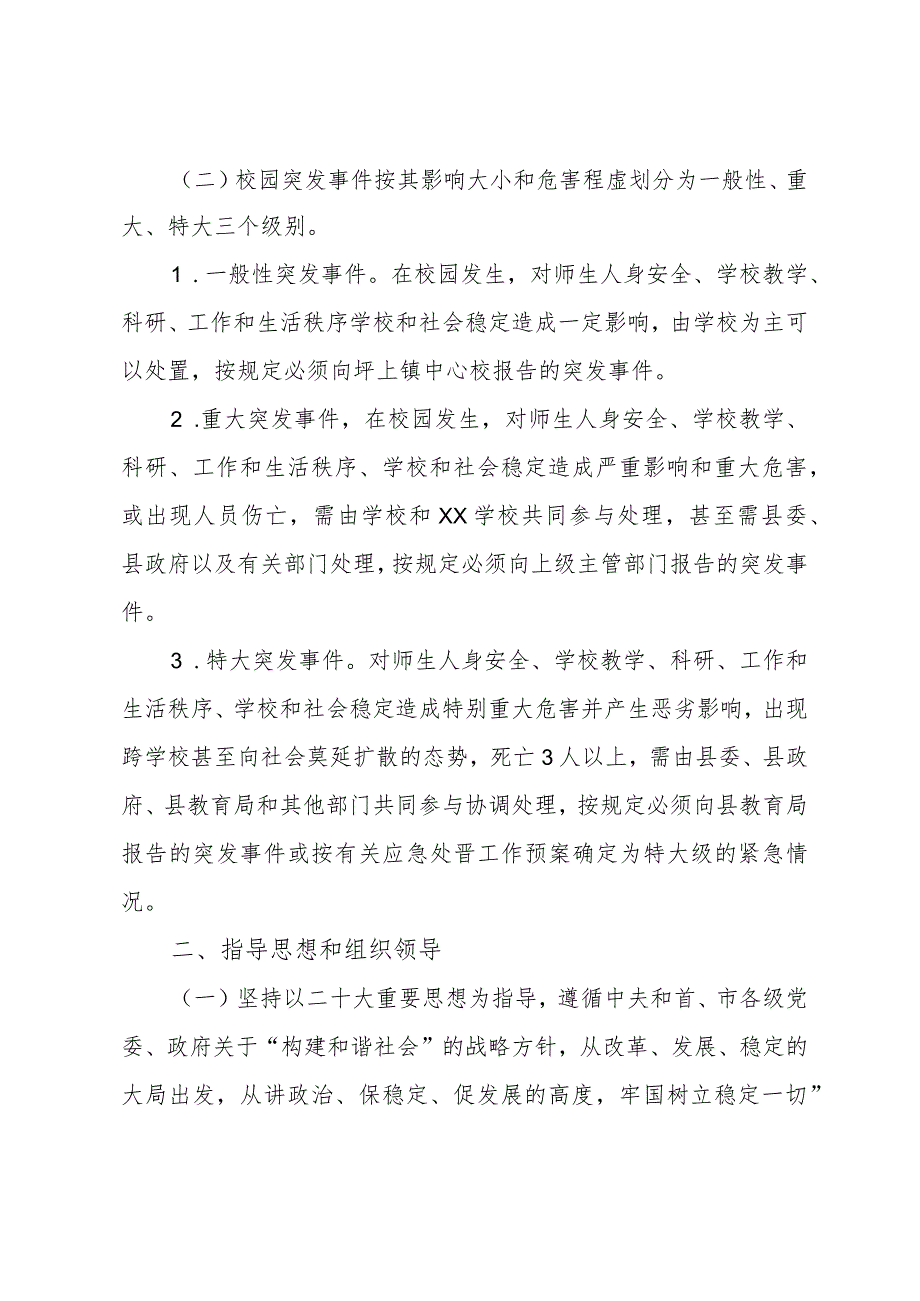 （二）校园突发事件按其影响大小和危害程虚划分为一般性、重
大、特大三个级别。
1 .一般性突发事件。在校园发生，对师生人身安全、学校教学、
科研、工作和生活秩序学校和社会稳定造成一定影响，由学校为主可
以处置，按规定必须向坪上镇中心校报告的突发事件。
2 .重大突发事件，在校园发生，对师生人身安全、学校教学、
科研、工作和生活秩序、学校和社会稳定造成严重影响和重大危害，
或出现人员伤亡，需由学校和 XX 学校共同参与处理，甚至需县委、
县政府以及有关部门处理，按规定必须向上级主管部门报告的突发事
件。
3 .特大突发事件。对师生人身安全、学校教学、科研、工作和
生活秩序、学校和社会稳定造成特别重大危害并产生恶劣影响，出现
跨学校甚至向社会莫延扩散的态势，死亡 3 人以上，需由县委、县政
府、县教育局和其他部门共同参与协调处理，按规定必须向县教育局
报告的突发事件或按有关应急处晋工作预案确定为特大级的紧急情
况。
二、指导思想和组织领导
（一）坚持以二十大重要思想为指导，遵循中夫和首、市各级党
委、政府关于“构建和谐社会”的战略方针，从改革、发展、稳定的
大局出发，从讲政治、保稳定、促发展的高度，牢国树立稳定一切”